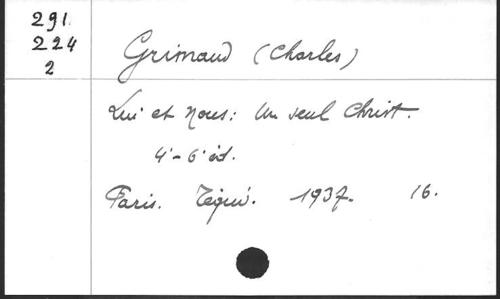 291
224
2
Grimaud (Charles)
Lui et nous: Un seul Christ.
4e-6e éd.
Paris. Téqui. 1937. 16.